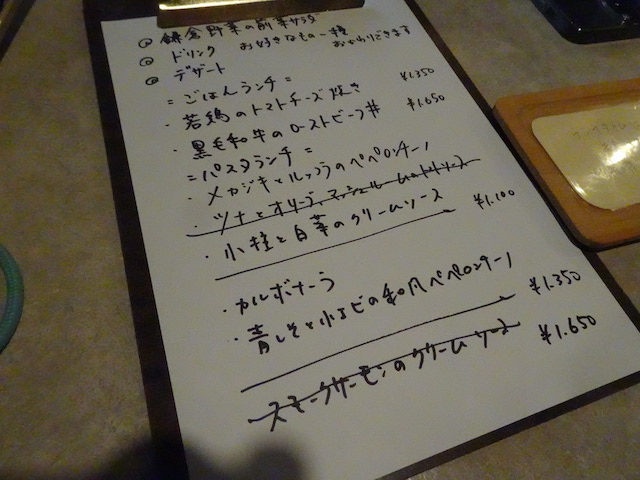 ① 鎌倉野菜の前菜サラダ
② ドリンク お好きなもの一種 おかわりできます
③ デザート
=ごはんランチ=
・若鶏のトマトチーズ焼き ¥1.350
・黒毛和牛のローストビーフ丼 ¥1.650
=パスタランチ=
・メカジキとルッコラのペペロンチーノ
・ツナとオリーブ、マッシュルームのトマトソース
・小柱と白菜のクリームソース ¥1.100
・カルボナーラ
・青しそと小エビの和風ペペロンチーノ ¥1.350
・スモークサーモンのクリームソース ¥1.650